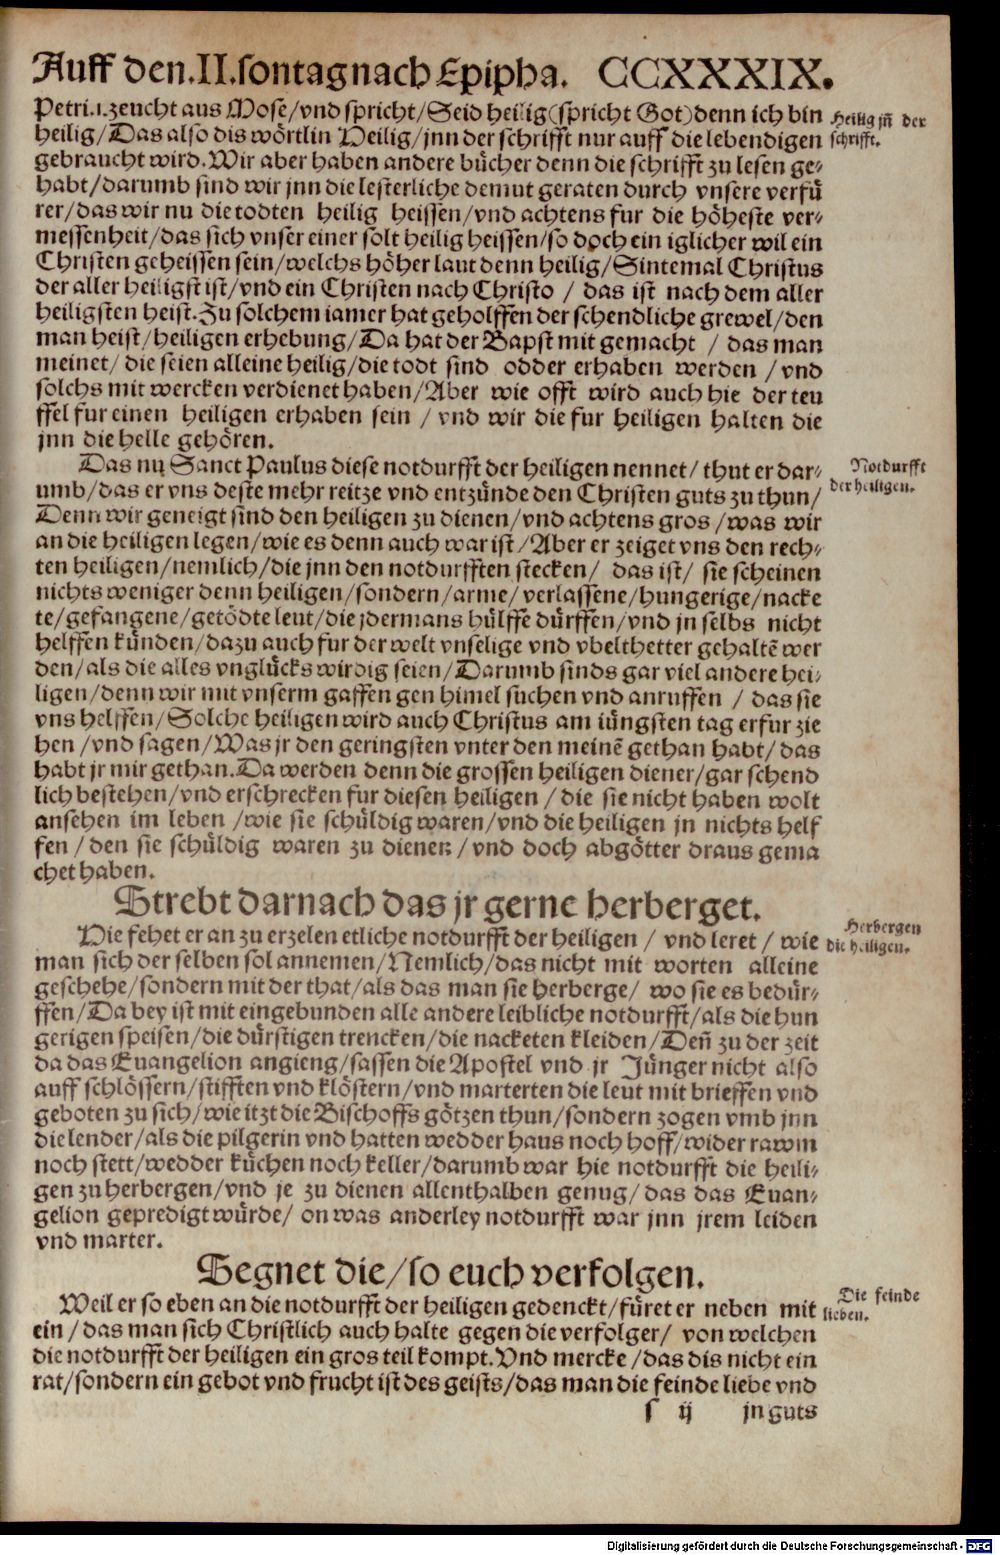 Auff den.II.sontag nach Epipha. CCXXXIX.
Petri.1.zeucht aus Mose/vnd spricht/Seid heilig(spricht Got)denn ich bin
heilig/Das also dis wörtlin Heilig/jnn der schrifft nur auff die lebendigen
gebraucht wird.Wir aber haben andere bücher denn die schrifft zu lesen ge-
habt/darumb sind wir jnn die lesterliche demut geraten durch vnsere verfü
rer/das wir nu die todten heilig heissen/vnd achtens fur die höheste ver-
messenheit/das sich vnser einer solt heilig heissen/so doch ein iglicher wil ein
Christen geheissen sein/welchs höher laut denn heilig/Sintemal Christus
der aller heiligst ist/vnd ein Christen nach Christo / das ist nach dem aller
heiligsten heist.Zu solchem iamer hat geholffen der schendliche grewel/den
man heist/heiligen erhebung/Da hat der Bapst mit gemacht / das man
meinet/ die seien alleine heilig/die todt sind odder erhaben werden / vnd
solchs mit wercken verdienet haben/Aber wie offt wird auch hie der teu
ffel fur einen heiligen erhaben sein / vnd wir die fur heiligen halten die
jnn die helle gehören.
Heilig jñ der
schrifft.
Das nu Sanct Paulus diese notdurfft der heiligen nennet/ thut er dar-
umb/das er vns deste mehr reitze vnd entzünde den Christen guts zu thun/
Denn wir geneigt sind den heiligen zu dienen/vnd achtens gros/was wir
an die heiligen legen/wie es denn auch war ist/Aber er zeiget vns den rech-
ten heiligen/nemlich/die jnn den notdurfften stecken/ das ist/ sie scheinen
nichts weniger denn heiligen/sondern/arme/verlassene/hungerige/nacke
te/gefangene/getödte leut/die jdermans hülffe dürffen/vnd jn selbs nicht
helffen künden/dazu auch fur der welt vnselige vnd vbelthetter gehaltē wer
den/als die alles vnglücks wirdig seien/Darumb sinds gar viel andere hei-
ligen/denn wir mit vnserm gaffen gen himel suchen vnd anruffen / das sie
vns helffen/Solche heiligen wird auch Christus am iüngsten tag erfur zie
hen /vnd sagen/Was jr den geringsten vnter den meinē gethan habt/das
habt jr mir gethan.Da werden denn die grossen heiligen diener/gar schend
lich bestehen/vnd erschrecken fur diesen heiligen / die sie nicht haben wolt
ansehen im leben /wie sie schüldig waren/vnd die heiligen jn nichts helf
fen / den sie schüldig waren zu dienen / vnd doch abgötter draus gema
chet haben.
Notdurfft
der heiligen.
Strebt darnach das jr gerne herberget.
Hie fehet er an zu erzelen etliche notdurfft der heiligen / vnd leret / wie
man sich der selben sol annemen/Nemlich/das nicht mit worten alleine
geschehe/sondern mit der that/als das man sie herberge/ wo sie es bedür-
ffen/Da bey ist mit eingebunden alle andere leibliche notdurfft/als die hun
gerigen speisen/die dürstigen trencken/die nacketen kleiden/Deñ zu der zeit
da das Euangelion angieng/sassen die Apostel vnd jr Jünger nicht also
auff schlössern/stifften vnd klöstern/vnd marterten die leut mit brieffen vnd
geboten zu sich/wie itzt die Bischoffs götzen thun/sondern zogen vmb jnn
die lender/als die pilgerin vnd hatten wedder haus noch hoff/wider rawm
noch stett/wedder küchen noch keller/darumb war hie notdurfft die heili-
gen zu herbergen/vnd je zu dienen allenthalben genug/das das Euan-
gelion gepredigt würde/ on was anderley notdurfft war jnn jrem leiden
vnd marter.
Herbergen
die heiligen.
Segnet die/so euch verfolgen.
Weil er so eben an die notdurfft der heiligen gedenckt/füret er neben mit
ein / das man sich Christlich auch halte gegen die verfolger/ von welchen
die notdurfft der heiligen ein gros teil kompt.Vnd mercke/das dis nicht ein
rat/sondern ein gebot vnd frucht ist des geists/das man die feinde liebe vnd
Die feinde
lieben.
s ij jn guts
Digitalisierung gefördert durch die Deutsche Forschungsgemeinschaft - DFG